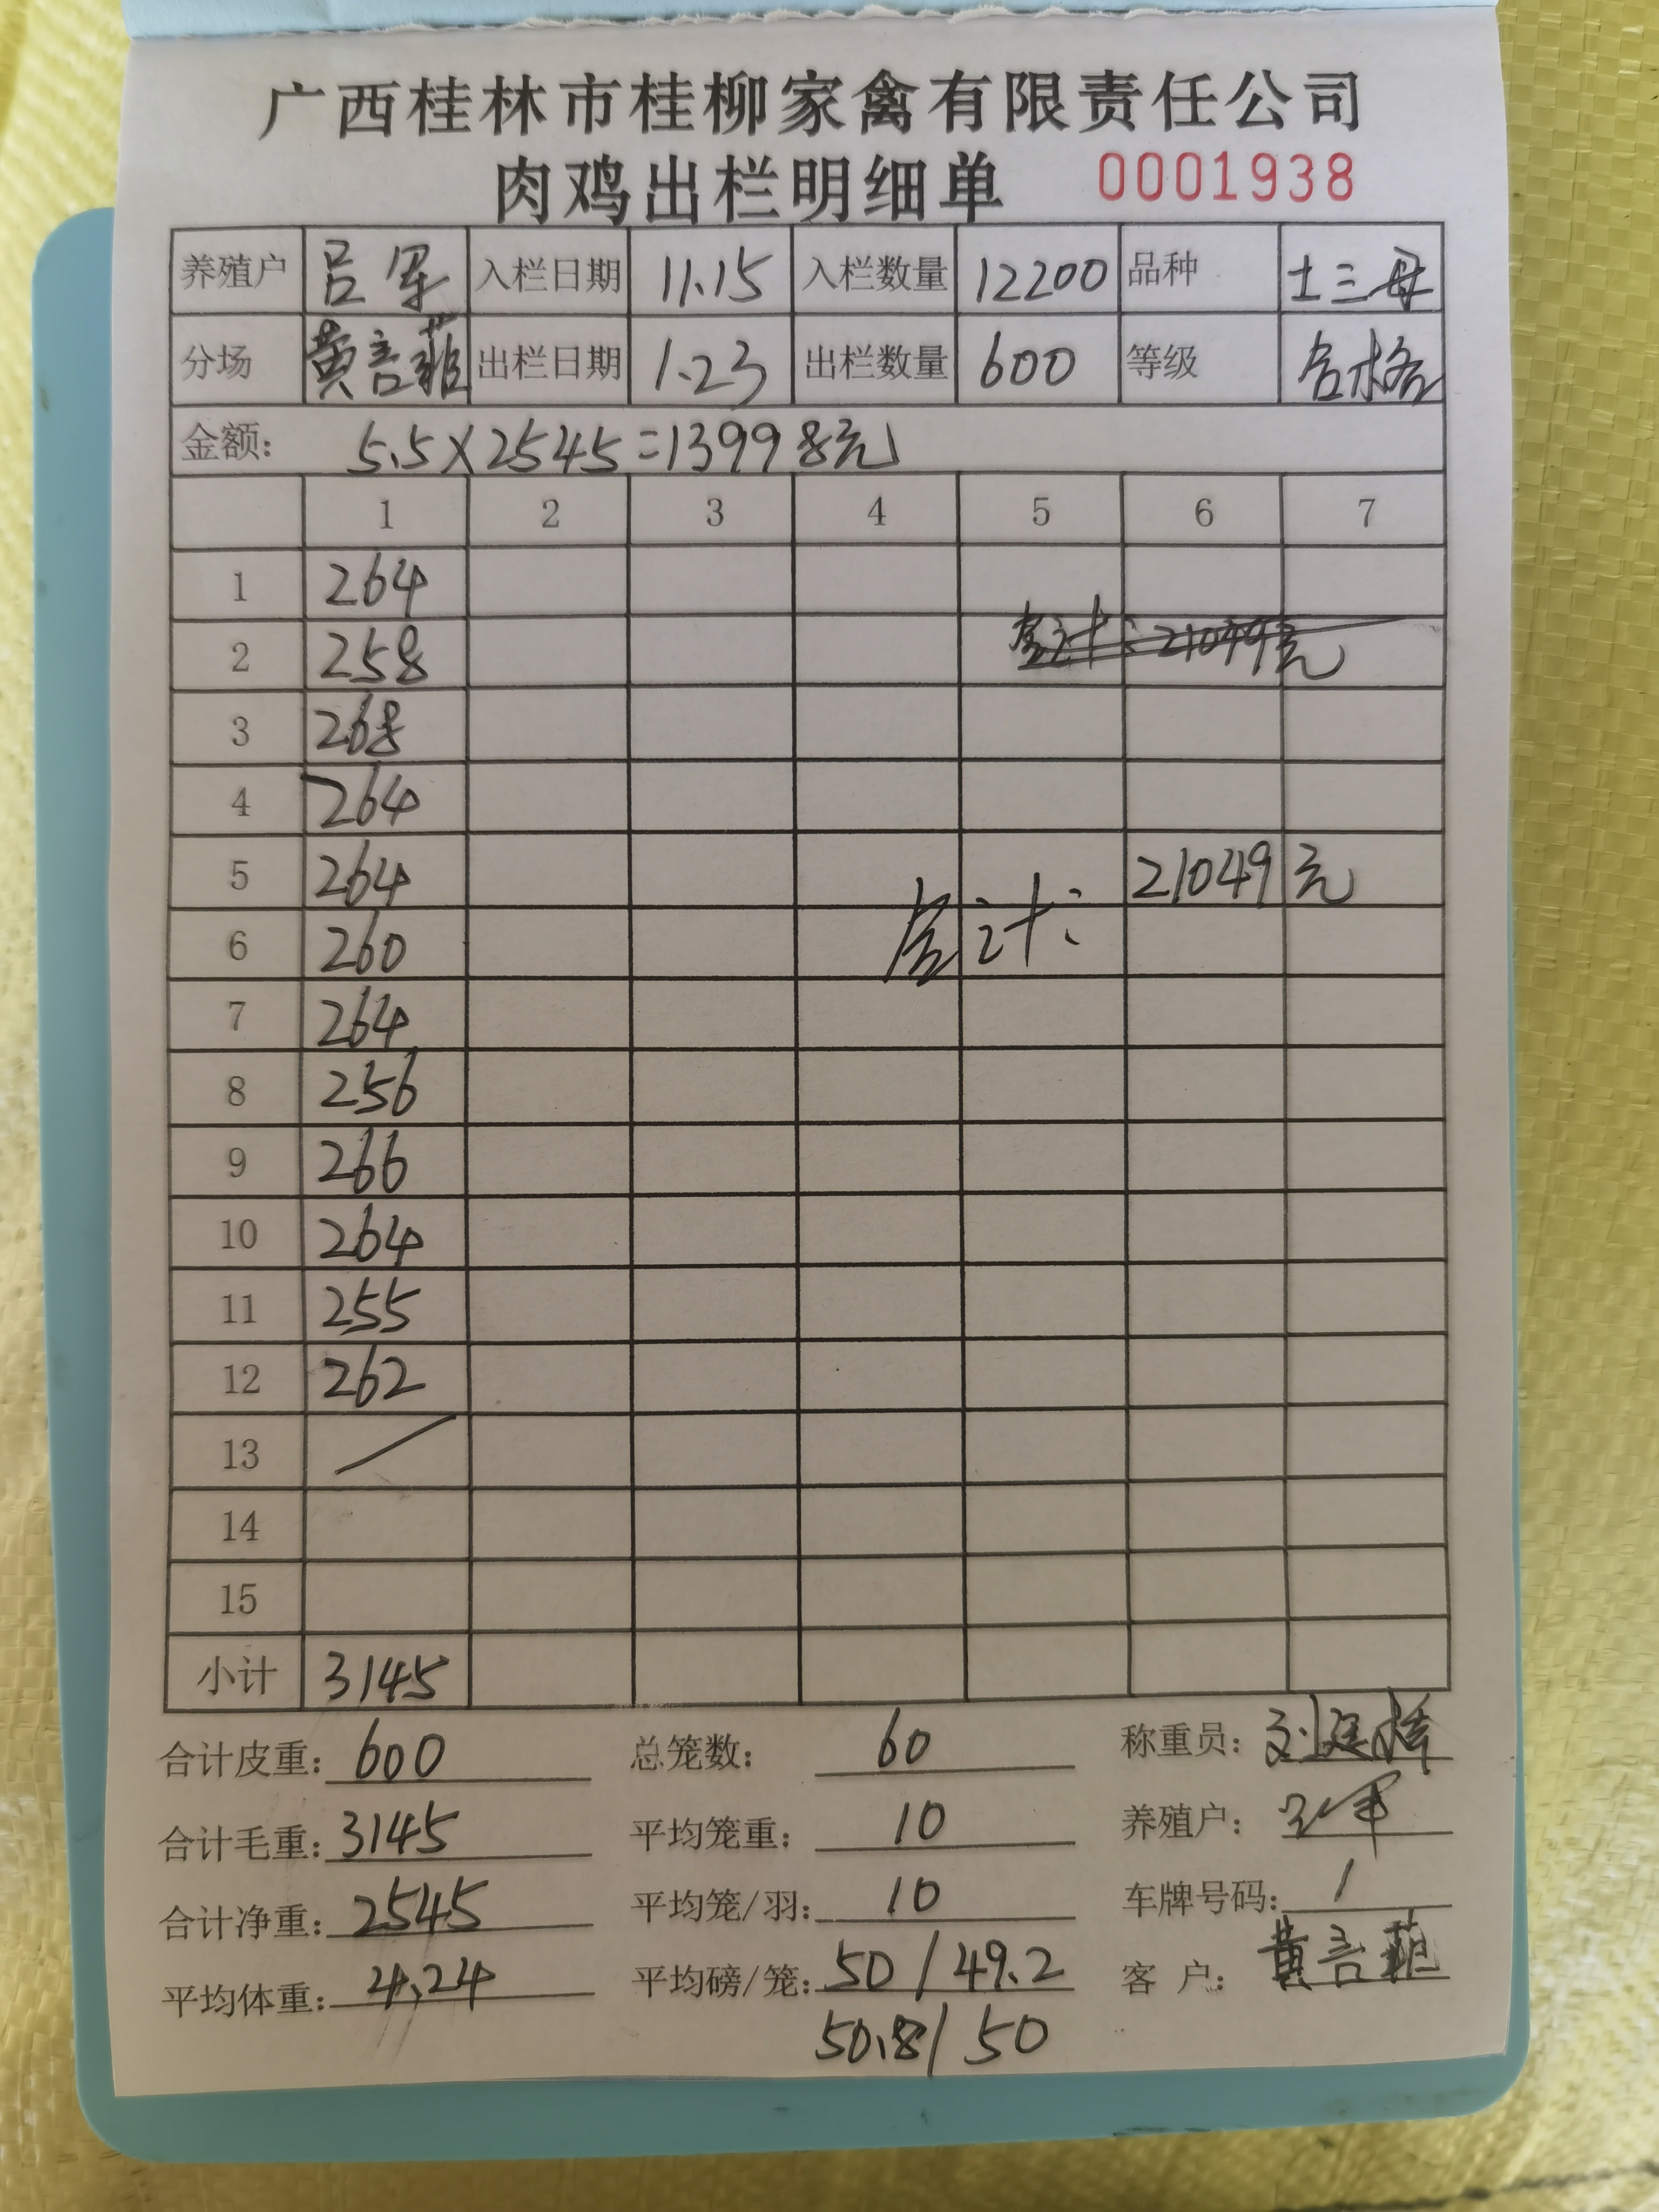 广西桂林市桂柳家禽有限责任公司
肉鸡出栏明细单 0001938
养殖户 吕军 入栏日期 11.15 入栏数量 12200 品种 土三母
分场 黄言菲 出栏日期 1.23 出栏数量 600 等级 合格
金额: 5.5×2545=13998元
1 2 3 4 5 6 7
1 264
2 258 总计:21049元
3 268
4 264
5 264 21049元
6 260 总计:
7 264
8 256
9 266
10 264
11 255
12 262
13 /
14
15
小计 3145
合计皮重: 600 总笼数: 60 称重员:
合计毛重: 3145 平均笼重: 10 养殖户: 吕军
合计净重: 2545 平均笼/羽: 10 车牌号码: /
平均体重: 4.24 平均磅/笼: 50/49.2 客户: 黄言菲
50.8/50